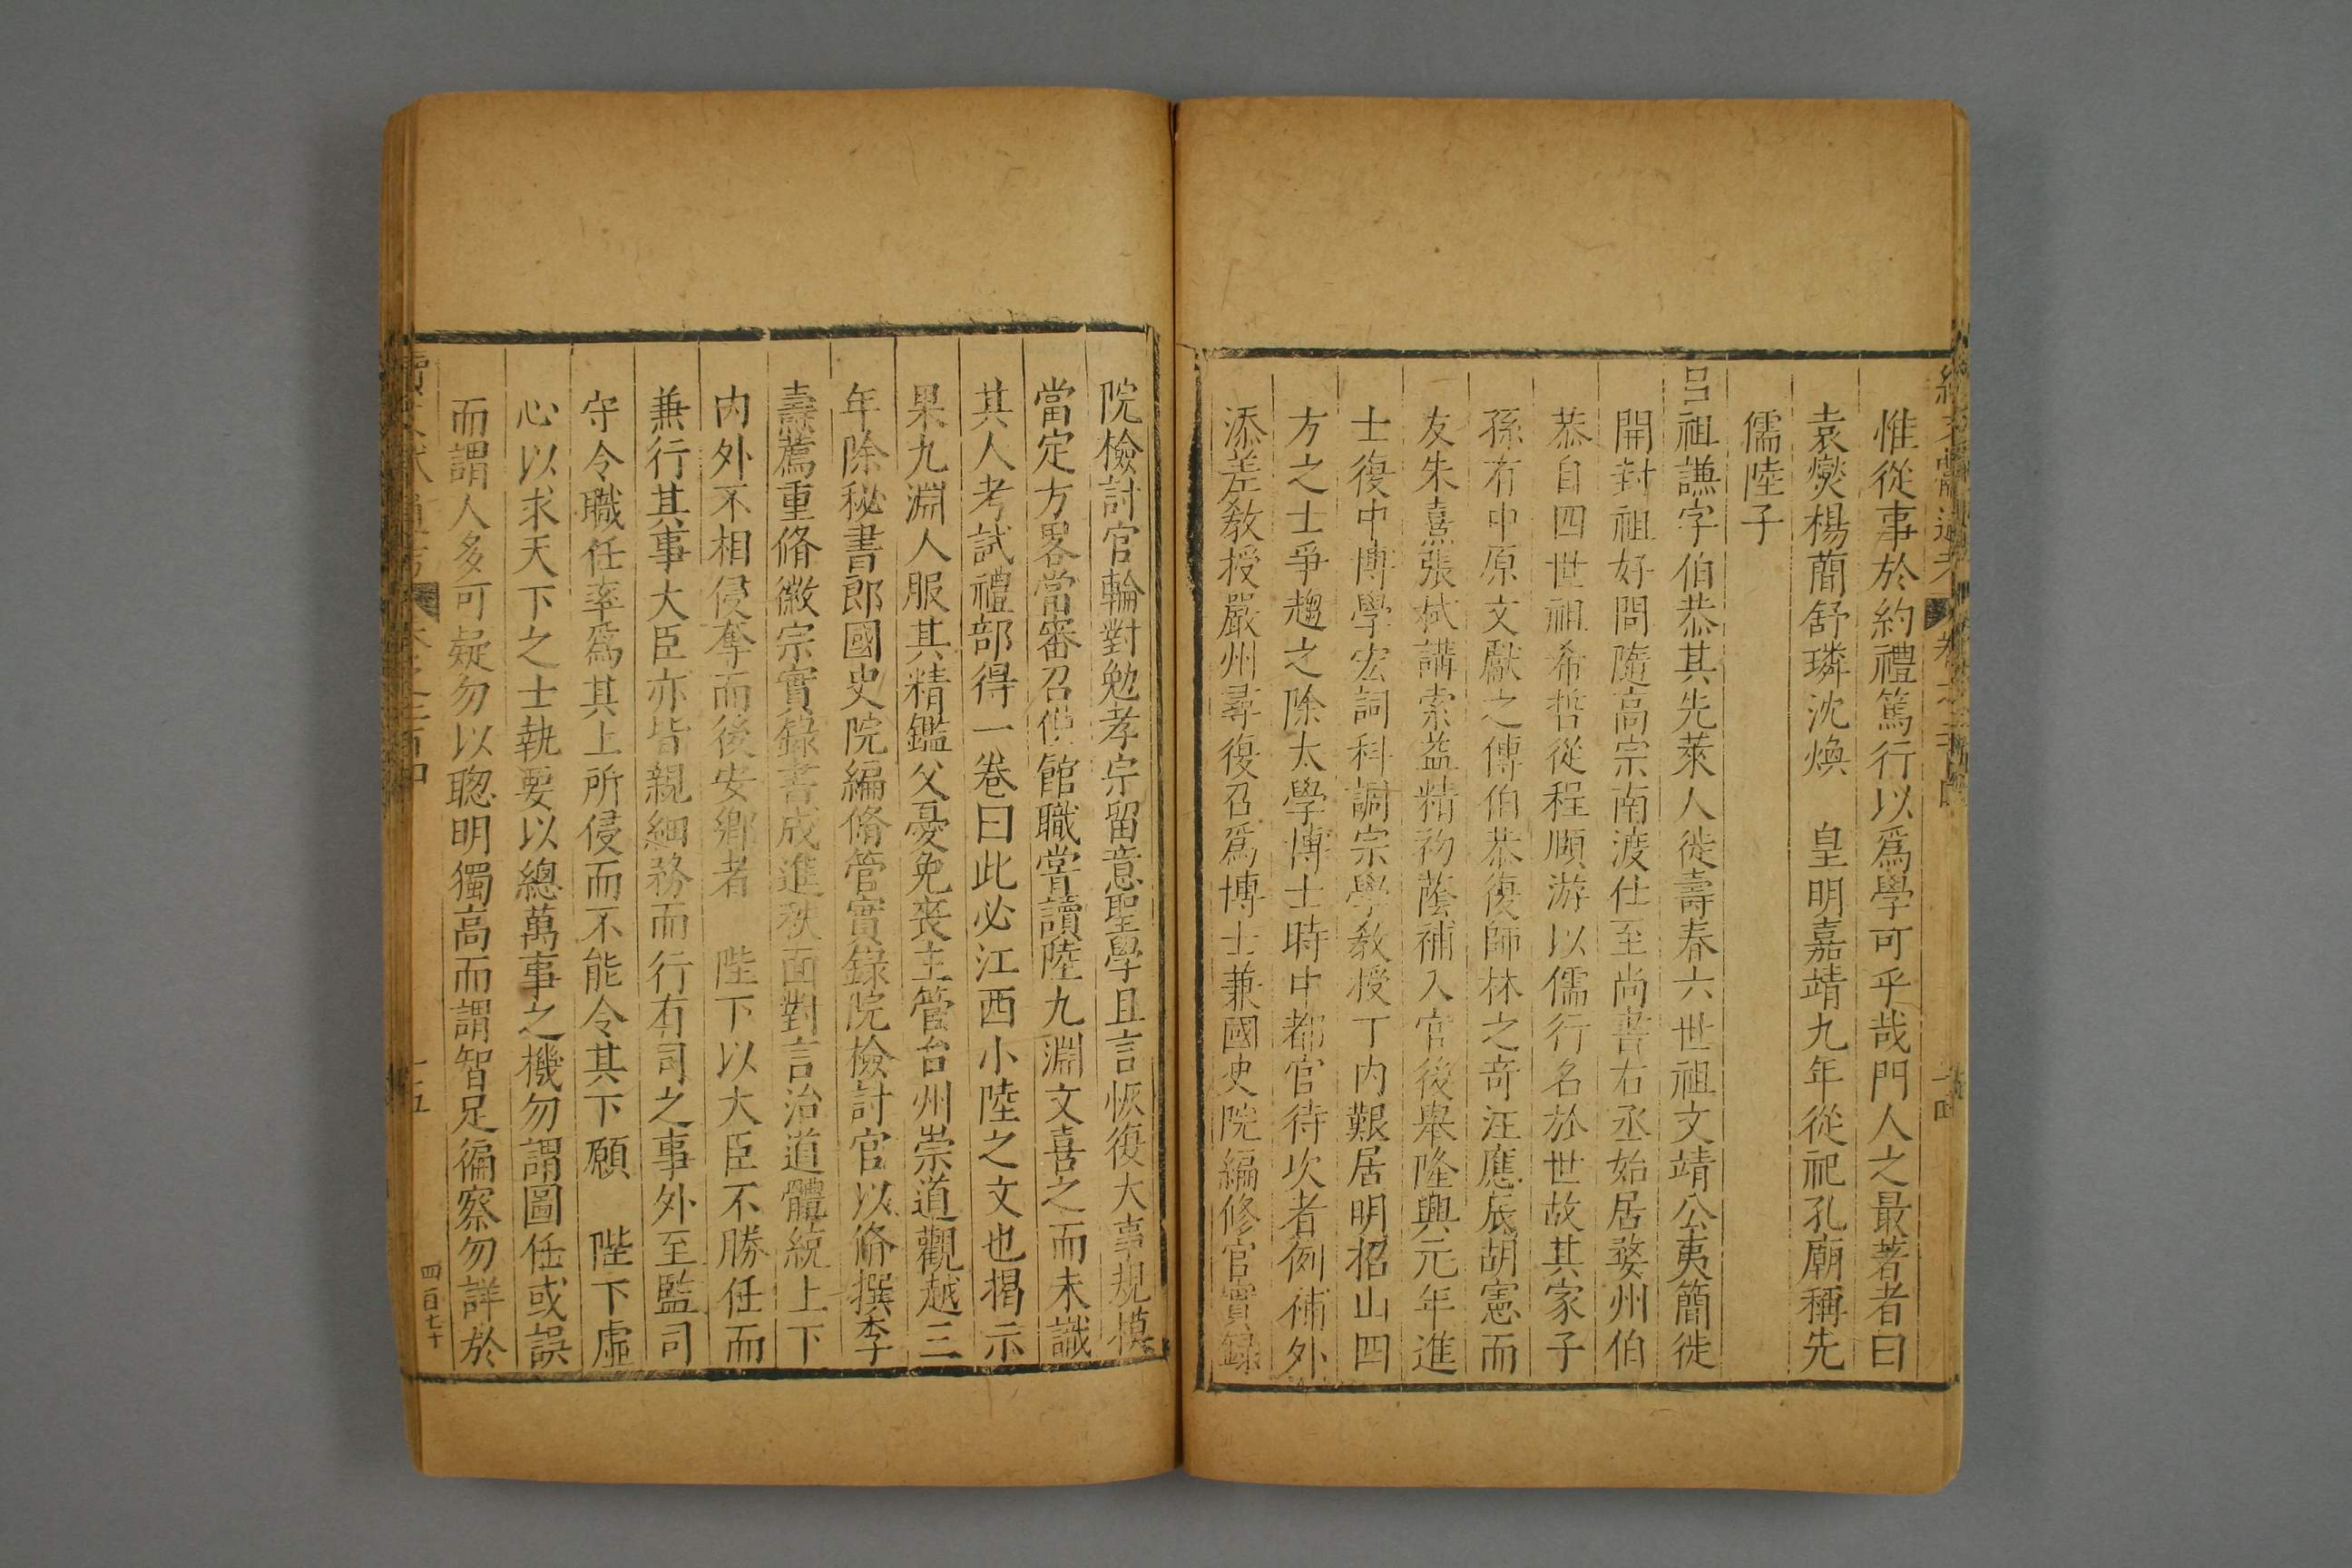 惟從事於約禮篤行以爲學可乎哉門人之最著者曰
袁爕楊蕑舒璘沈煥　皇明嘉靖九年從祀孔廟稱先
儒陸子
呂祖謙字伯恭其先萊人徙壽春六世祖文靖公夷簡徙
開封祖好問隨高宗南渡仕至尚書右丞始居婺州伯
恭自四世祖希哲從程頤游以儒行名於世故其家子
孫有中原文獻之傳伯恭復師林之奇汪應辰胡憲而
友朱熹張栻講索益精初蔭補入官後舉隆興元年進
士復中博學宏詞科調宗學敎授丁內艱居明招山四
方之士爭趨之除太學博士時中都官待次者例補外
添差敎授嚴州尋復召爲博士兼國史院編修官實録
院檢討官輪對勉孝宗留意聖學且言恢復大事規模
當定方畧當審召但館職嘗讀陸九淵文喜之而未識
其人考試禮部得一卷曰此必江西小陸之文也揭示
果九淵人服其精鑑父憂免喪主管台州崇道觀越三
年除秘書郎國史院編脩管實錄院檢討官以脩撰李
燾薦重脩徽宗實錄書成進秩面對言治道體統上下
内外不相侵奪而後安鄉者　陛下以大臣不勝任而
兼行其事大臣亦皆親細務而行有司之事外至監司
守令職任率爲其上所侵而不能令其下願　陛下虛
心以求天下之士執要以總萬事之機勿謂圖任或誤
而謂人多可疑勿以聰明獨高而謂智足徧察勿詳於
四百七十